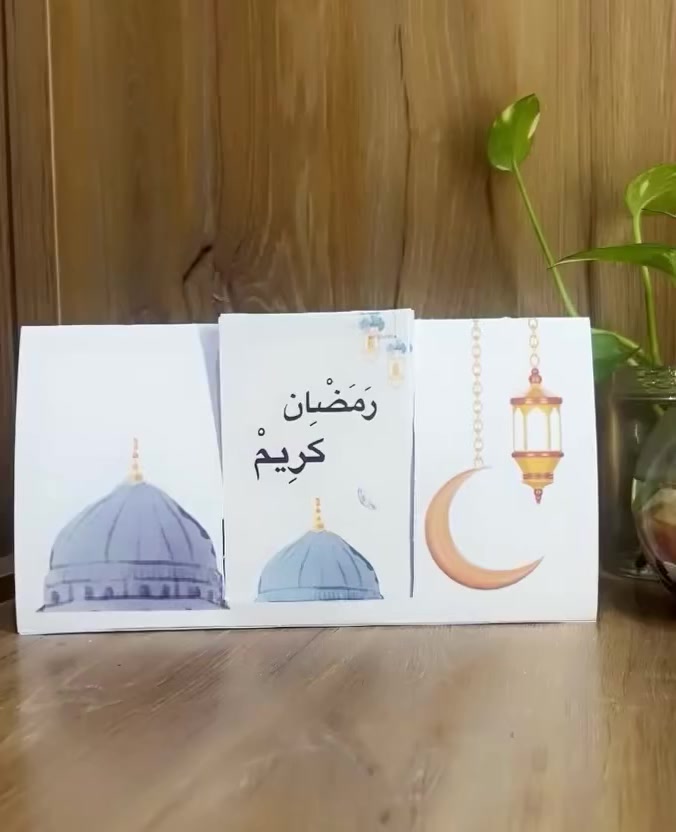 رَمَضْاِن
كرِيمْ